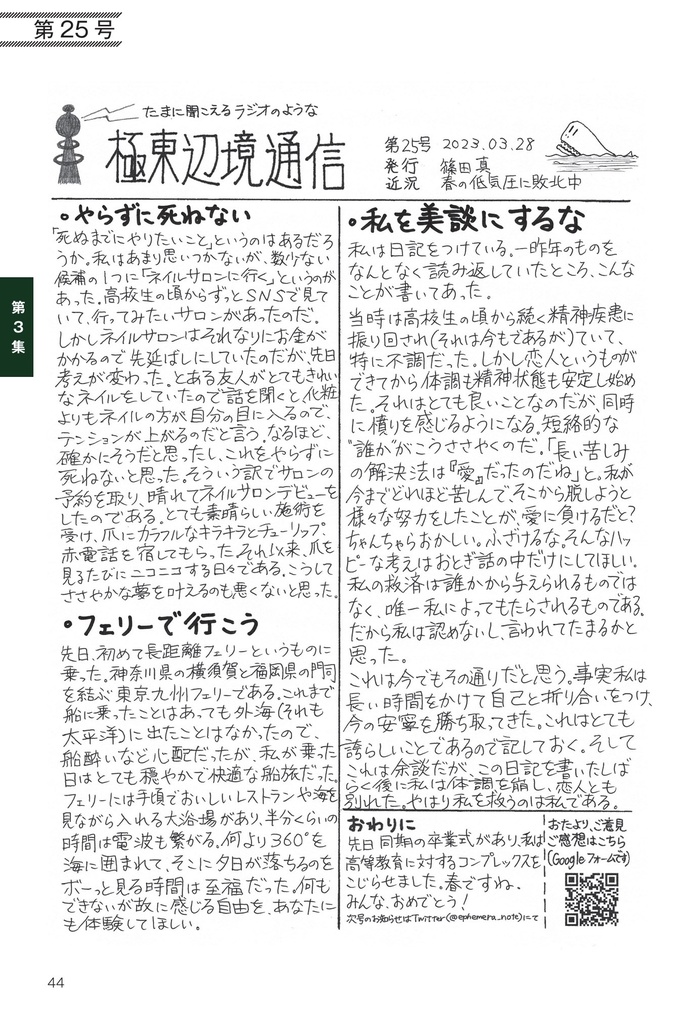 第25号
たまに聞こえるラジオのような
極東辺境通信
第25号 2023.03.28
発行 篠田真
近況 春の低気圧に敗北中
第3集
・やらずに死ねない
「死ぬまでにやりたいこと」というのはあるだろ
うか。私はあまり思いつかないが、数少ない
候補の1つに「ネイルサロンに行く」というのが
あった。高校生の頃からずっとSNSで見て
いて、行ってみたいサロンがあったのだ。
しかしネイルサロンはそれなりにお金が
かかるので先延ばしにしていたのだが、先日
考えが変わった。とある友人がとてもきれい
なネイルをしていたので話を聞くと、化粧
よりもネイルの方が自分の目に入るので、
テンションが上がるのだと言う。なるほど、
確かにそうだと思ったし、これをやらずに
死ねないと思った。そういう訳でサロンの
予約を取り、晴れてネイルサロンデビューを
したのである。とても素晴らしい施術を
受け、爪にカラフルなキラキラとチューリップ、
赤電話を宿してもらった。それ以来、爪を
見るたびにニコニコする日々である。こうして
ささやかな夢を叶えるのも悪くないと思った。
・フェリーで行こう
先日、初めて長距離フェリーというものに
乗った。神奈川県の横須賀と福岡県の門司
を結ぶ東京九州フェリーである。これまで
船に乗ったことはあっても外海(それも
太平洋)に出たことはなかったので、
船酔いなど心配だったが、私が乗った
日はとても穏やかで快適な船旅だった。
フェリーには手頃でおいしいレストランや海を
見ながら入れる大浴場があり、半分くらいの
時間は電波も繋がる。何より360°を
海に囲まれて、そこに夕日が落ちるのを
ボーっと見る時間は至福だった。何も
できないが故に感じる自由を、あなたに
も体験してほしい。
・私を美談にするな
私は日記をつけている。一昨年のものを
なんとなく読み返していたところ、こんな
ことが書いてあった。
当時は高校生の頃から続く精神疾患に
振り回され(それは今もであるが)ていて、
特に不調だった。しかし恋人というものが
できてから体調も精神状態も安定し始め
た。それはとても良いことなのだが、同時
に憤りを感じるようになる。短絡的な
"誰か"がこうささやくのだ。「長い苦しみ
の解決法は『愛』だったのだね」と。私が
今までどれほど苦しんで、そこから脱しようと
様々な努力をしたことが、愛に負けるだと?
ちゃんちゃらおかしい。ふざけるな。そんなハッ
ピーな考えはおとぎ話の中だけにしてほしい。
私の救済は誰かから与えられるものでは
なく、唯一私によってもたらされるものである。
だから私は認めないし、言われてたまるかと
思った。
これは今でもその通りだと思う。事実私は
長い時間をかけて自己と折り合いをつけ、
今の安寧を勝ち取ってきた。これはとても
誇らしいことであるので記しておく。そして
これは余談だが、この日記を書いたしば
らく後に私は体調を崩し、恋人とも
別れた。やはり私を救うのは私である。
おわりに
先日同期の卒業式があり、私は
高等教育に対するコンプレックスを
こじらせました。春ですね。
みんな、おめでとう!
次号のお知らせはTwitter(@ephemera_note)にて
おたより、ご意見
ご感想はこちら
(Googleフォームです)
44